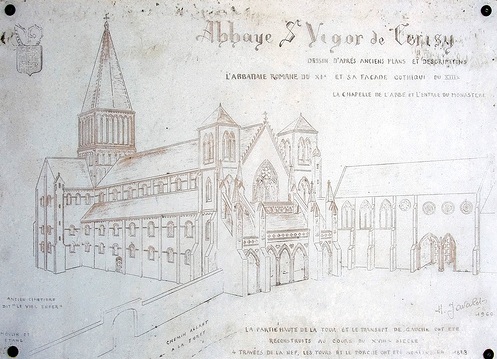 Abbaye St Vigor de Cerisy
DESSIN D'APRÈS ANCIENS PLANS ET DESCRIPTIONS
L'ABBATIALE ROMANE DU XIe ET SA FAÇADE GOTHIQUE DU XIIIe
LA CHAPELLE DE L'ABBÉ ET L'ENTRÉE DU MONASTÈRE
ANCIEN CIMETIÈRE
DIT "LE
MOULIN ET
ETANG
CHEMIN ALLANT
A LA FORÊT
LA PARTIE HAUTE DE LA TOUR ET LE TRANSEPT DE GAUCHE ONT ÉTÉ
RECONSTRUITS AU COURS DU XVIIIe SIÈCLE
4 TRAVÉES DE LA NEF, LES TOURS ET LE PORCHE ONT ÉTÉ